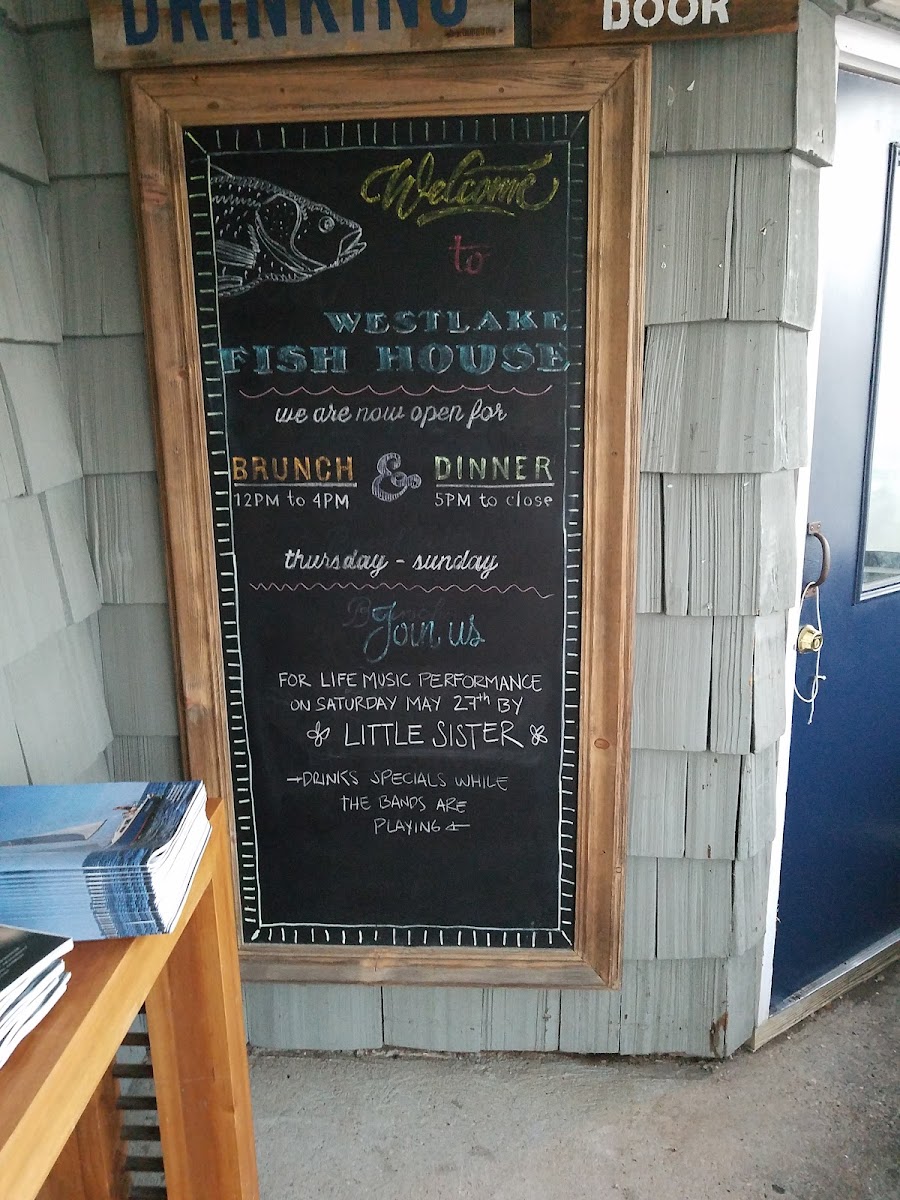 DRINKING
DOOR
Welcome
to
WESTLAKE
FISH HOUSE
we are now open for
BRUNCH & DINNER
12PM to 4PM 5PM to close
thursday - sunday
Join us
FOR LIFE MUSIC PERFORMANCE
ON SATURDAY MAY 27th BY
LITTLE SISTER
→DRINKS SPECIALS WHILE
THE BANDS ARE
PLAYING←